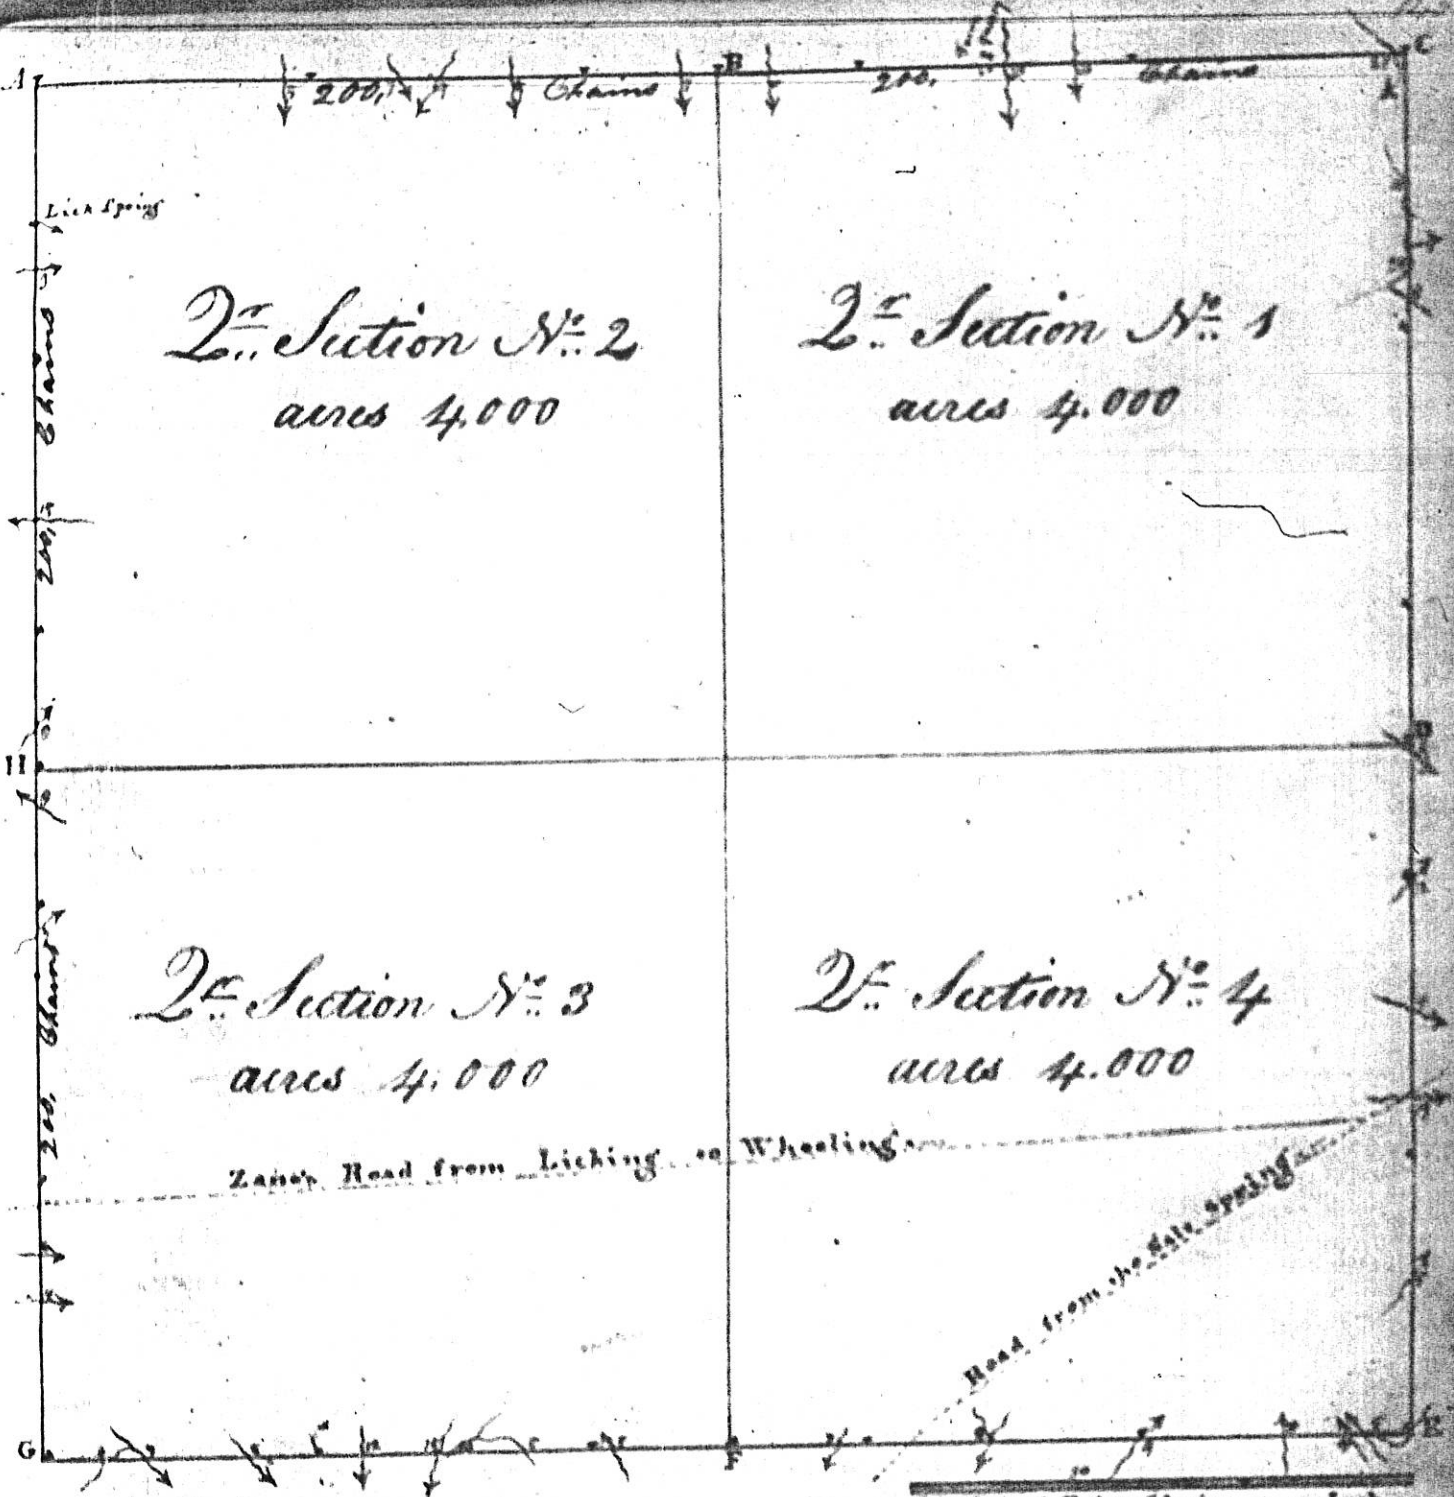 A
B
C
200, Chains
200, Chains
Lick Spring
200, Chains
Qr Section No 2
acres 4.000
Qr Section No 1
acres 4.000
H
200, Chains
Qr Section No 3
acres 4.000
Qr Section No 4
acres 4.000
Zane's Road from Licking to Wheeling
Road from the Salt Spring
G
F
E